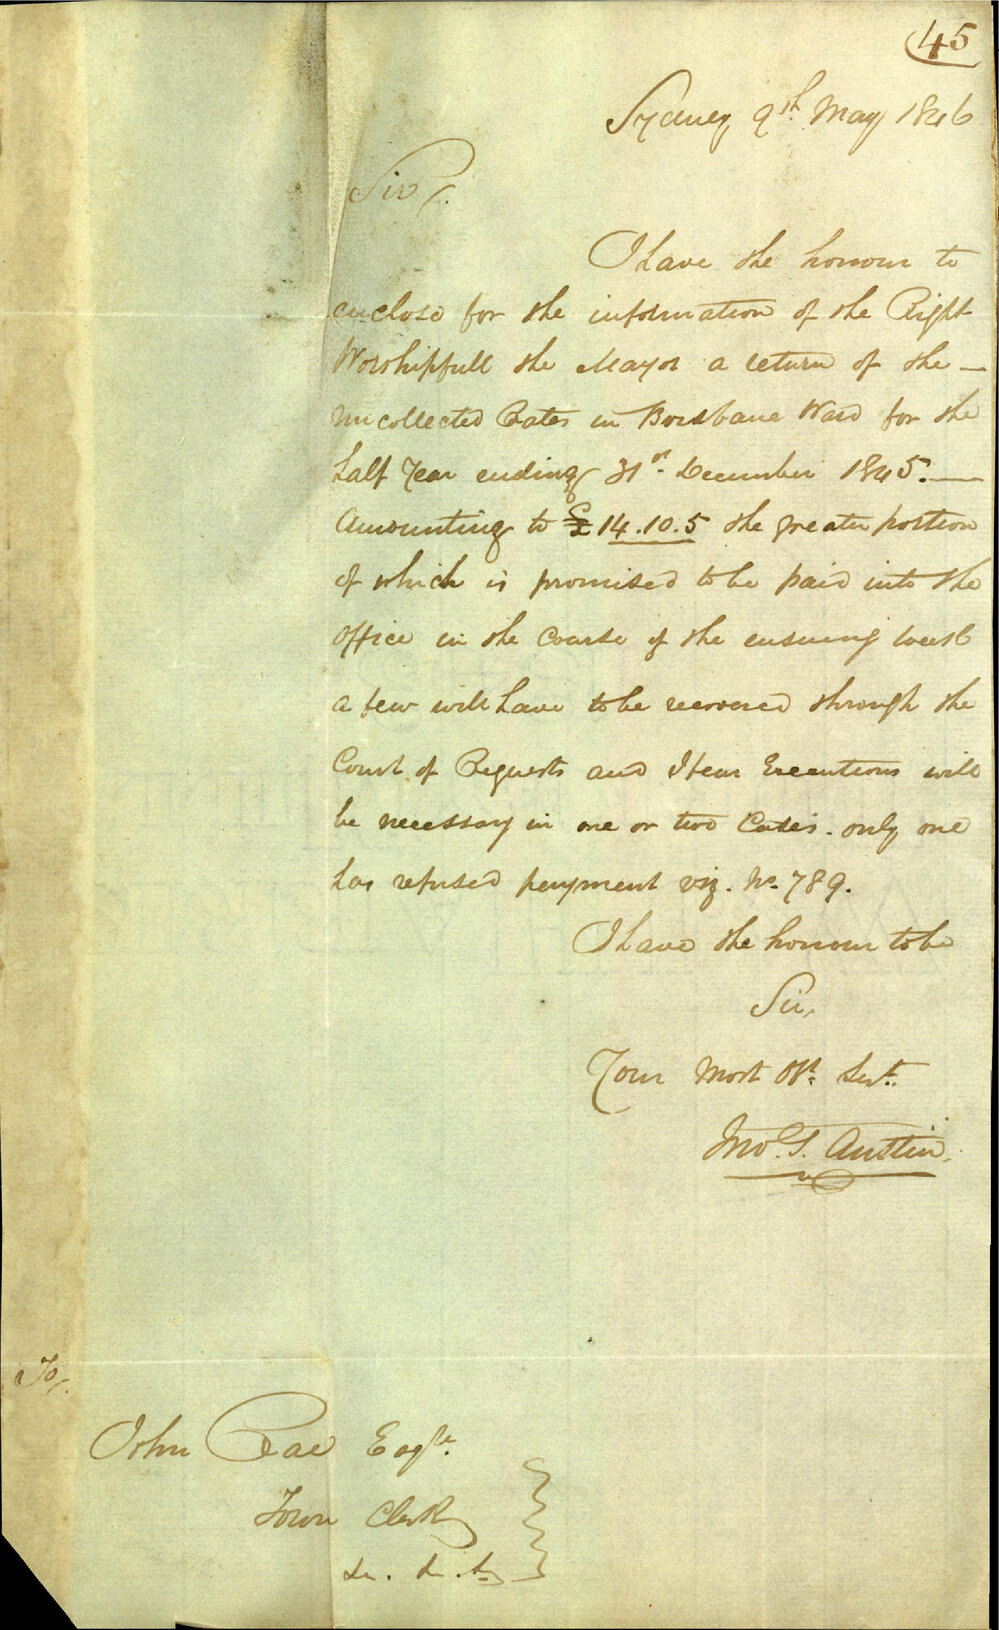 45
Sydney 9th May 1846
Sir/.
I have the honour to
enclose for the information of the Right
Worshipfull the Mayor a return of the —
uncollected Rates in Brisbane Ward for the
half Year ending 31st December 1845. —
Amounting to £14.10.5 the greater portion
of which is promised to be paid into the
office in the Course of the ensuing week
a few will have to be recovered through the
Court of Requests and I fear Executions will
be necessary in one or two Cases. only one
has refused payment viz. No. 789.
I have the honour to be
Sir,
Your Most Obt. Servt.
Jno. S. Austin.
To/.
John Rae Esqre.
Town Clerk